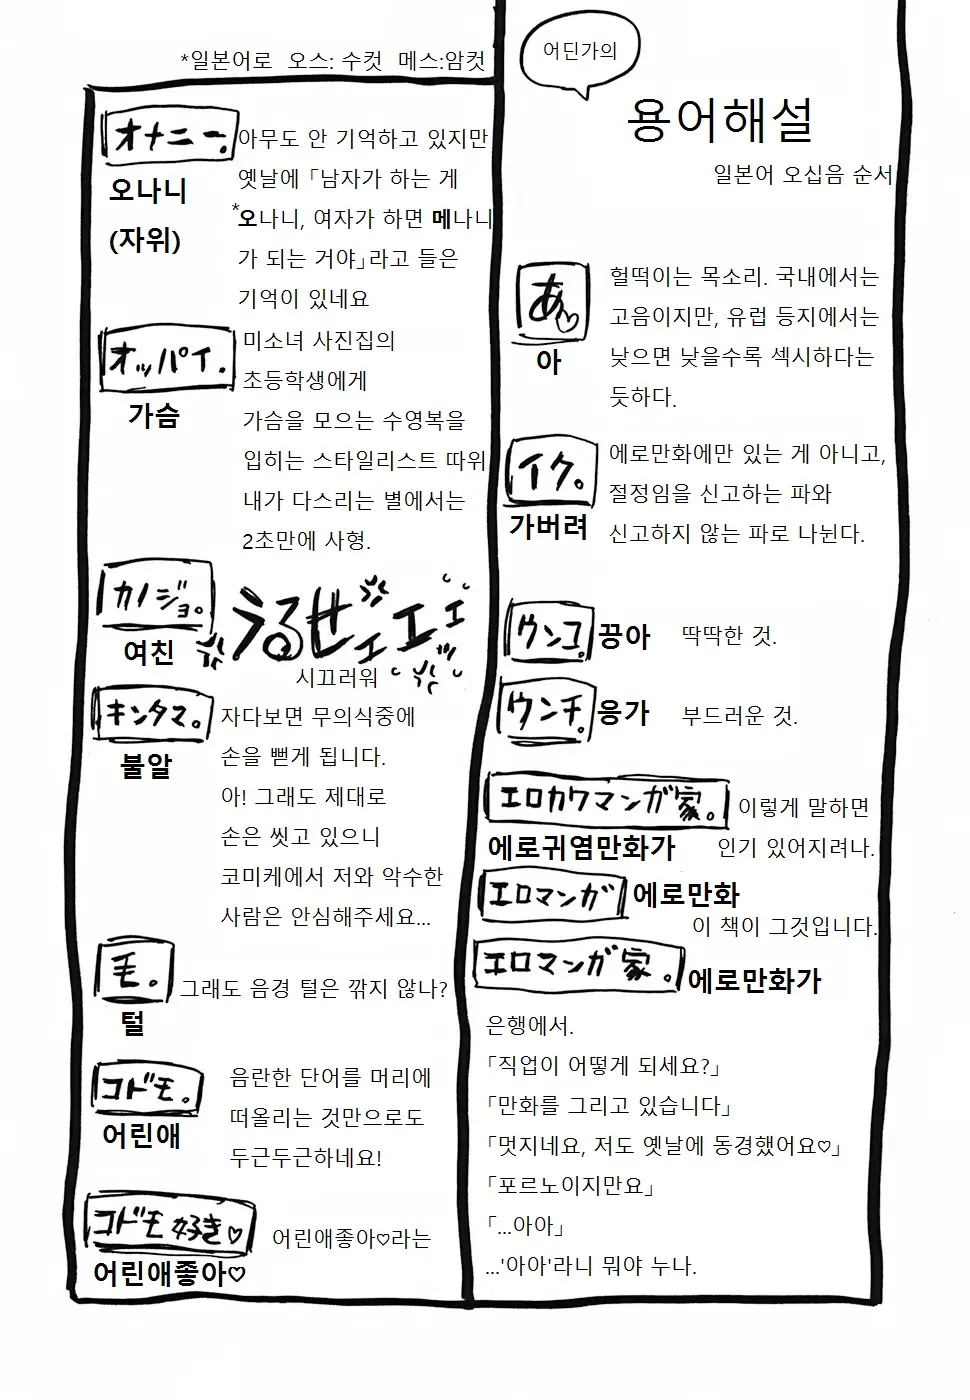 어딘가의
용어해설
일본어 오십음 순서
あ♡
아
헐떡이는 목소리. 국내에서는
고음이지만, 유럽 등지에서는
낮으면 낮을수록 섹시하다는
듯하다.
イク。
가버려
에로만화에만 있는 게 아니고,
절정임을 신고하는 파와
신고하지 않는 파로 나뉜다.
ウンコ。
끙아
딱딱한 것.
ウンチ。
응가
부드러운 것.
エロカワマンガ家。
에로귀염만화가
이렇게 말하면
인기 있어지려나.
エロマンガ
에로만화
이 책이 그것입니다.
エロマンガ家。
에로만화가
은행에서.
「직업이 어떻게 되세요?」
「만화를 그리고 있습니다」
「멋지네요, 저도 옛날에 동경했어요♡」
「포르노이지만요」
「...아아」
...'아아'라니 뭐야 누나.
*일본어로 오스: 수컷 메스:암컷
オナニー。
오나니
(자위)
아무도 안 기억하고 있지만
옛날에 「남자가 하는 게
*오나니, 여자가 하면 메나니
가 되는 거야」라고 들은
기억이 있네요
オッパイ.
가슴
미소녀 사진집의
초등학생에게
가슴을 모으는 수영복을
입히는 스타일리스트 따위
내가 다스리는 별에서는
2초만에 사형.
カノジョ。
여친
うるせェエエ
시끄러워
キンタマ。
불알
자다보면 무의식중에
손을 뻗게 됩니다.
아! 그래도 제대로
손은 씻고 있으니
코미케에서 저와 악수한
사람은 안심해주세요...
毛。
털
그래도 음경 털은 깎지 않나?
コドモ。
어린애
음란한 단어를 머리에
떠올리는 것만으로도
두근두근하네요!
コドモ好き♡
어린애좋아♡
어린애좋아♡라는